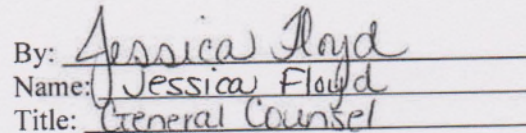 By: Jessica Floyd
Name: Jessica Floyd
Title: General Counsel